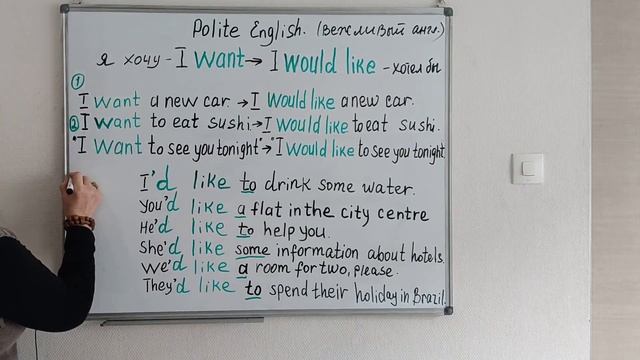 Polite English. (вежливый англ.)
я хочу - I want → I would like - хотел бы
①
I want a new car. → I would like a new car.
② I want to eat sushi. → I would like to eat sushi.
"I want to see you tonight" → "I would like to see you tonight.
I'd like to drink some water.
You'd like a flat in the city centre
He'd like to help you.
She'd like some information about hotels.
We'd like a room for two, please.
They'd like to spend their holiday in Brazil.